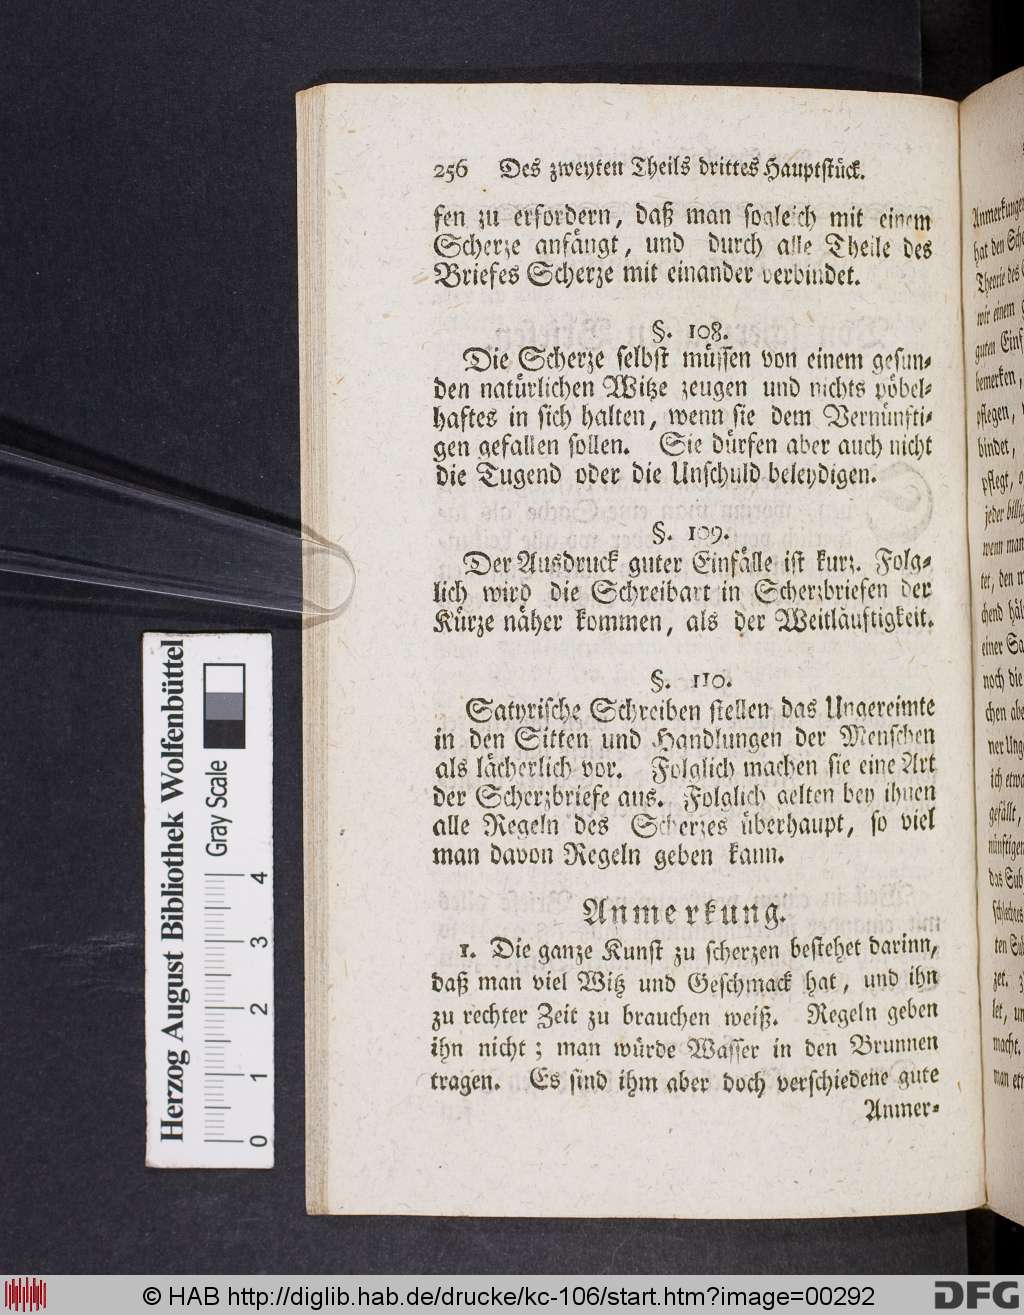 256 Des zweyten Theils drittes Hauptstück.
fen zu erfordern, daß man sogleich mit einem
Scherze anfängt, und durch alle Theile des
Briefes Scherze mit einander verbindet.
§. 108.
Die Scherze selbst müssen von einem gesun-
den natürlichen Witze zeugen und nichts pöbel-
haftes in sich halten, wenn sie dem Vernünfti-
gen gefallen sollen. Sie dürfen aber auch nicht
die Tugend oder die Unschuld beleydigen.
§. 109.
Der Ausdruck guter Einfälle ist kurz. Folg-
lich wird die Schreibart in Scherzbriefen der
Kürze näher kommen, als der Weitläuftigkeit.
§. 110.
Satyrische Schreiben stellen das Ungereimte
in den Sitten und Handlungen der Menschen
als lächerlich vor. Folglich machen sie eine Art
der Scherzbriefe aus. Folglich gelten bey ihnen
alle Regeln des Scherzes überhaupt, so viel
man davon Regeln geben kann.
Anmerkung.
1. Die ganze Kunst zu scherzen bestehet darinn,
daß man viel Witz und Geschmack hat, und ihn
zu rechter Zeit zu brauchen weiß. Regeln geben
ihn nicht; man würde Wasser in den Brunnen
tragen. Es sind ihm aber doch verschiedene gute
Anmer-
Anmerkungen
hat den
Theorie des
wir einem
guten
bemerken,
pflegen,
bindet,
pflegt,
jeder
wenn man
tet, den
chend
einer
noch die
chen
ner
ich etwa
gefällt,
das
ten
zet.
let,
macht.
man
Herzog August Bibliothek Wolfenbüttel
Gray Scale
0 1 2 3 4
© HAB http://diglib.hab.de/drucke/kc-106/start.htm?image=00292
DFG